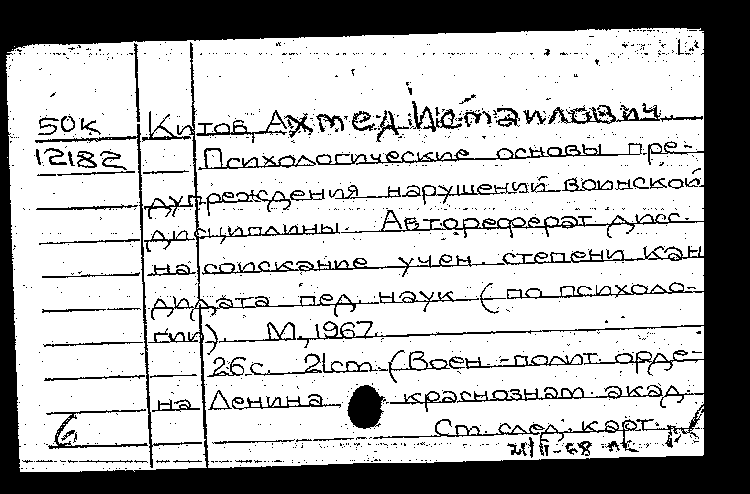 50К Китов, Ахмед Исмаилович
12182 Психологические основы пре-
дупреждения нарушений воинской
дисциплины. Автореферат дисс.
на соискание учен. степени кан
дидата пед. наук (по психоло-
гии). М., 1967.
26с. 21см (Воен.-полит. орде-
на Ленина краснознам. акад.
6 Ст. след. карт.
21/II-68